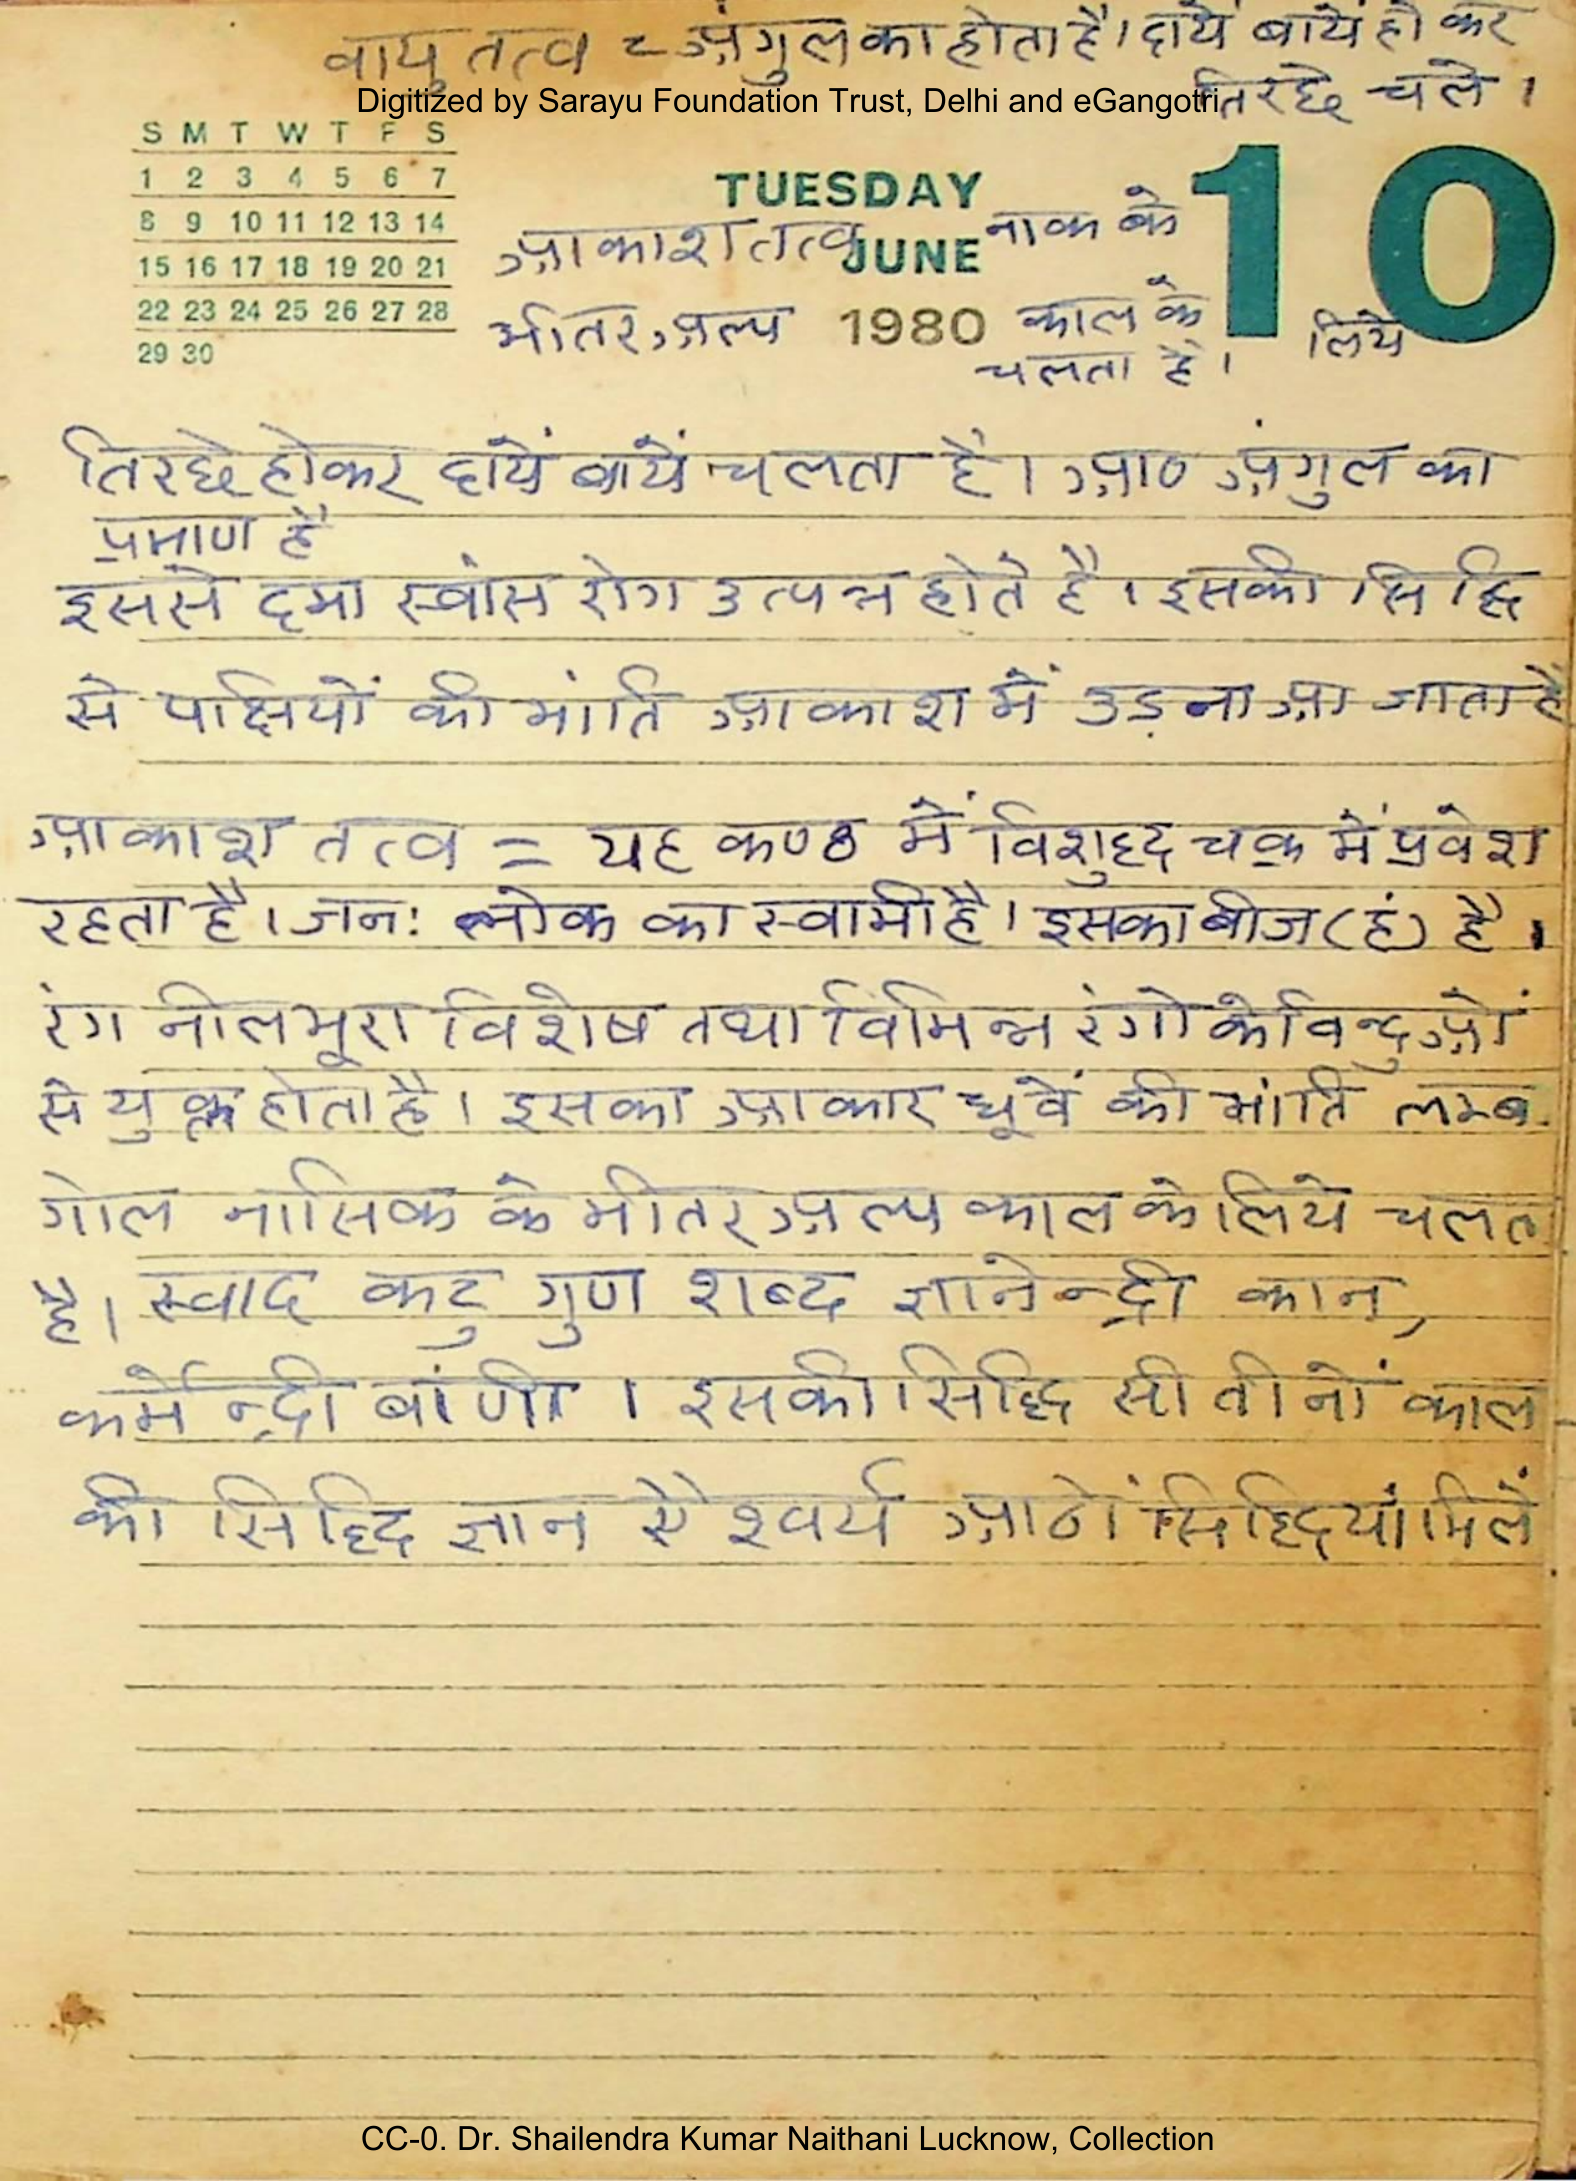 वायु तत्व = अंगुल का होता है। दायें बायें हो कर
तिरछे चले।
Digitized by Sarayu Foundation Trust, Delhi and eGangotri
S M T W T F S
1 2 3 4 5 6 7
8 9 10 11 12 13 14
15 16 17 18 19 20 21
22 23 24 25 26 27 28
29 30
TUESDAY
JUNE
1980
10
आकाश तत्व नाक के
भीतर अल्प काल के लिये
चलता है।
तिरछे होकर दायें बायें चलता है। आठ अंगुल का
प्रमाण है
इससे दमा स्वांस रोग उत्पन्न होते है। इसकी सिद्धि
से पक्षियों की भांति आकाश में उड़ना आ जाता है
आकाश तत्व = यह कण्ठ में विशुद्द चक्र में प्रवेश
रहता है। जन: लोक का स्वामी है। इसका बीज (हं) है।
रंग नील भूरा विशेष तथा विभिन्न रंगो के विन्दुओं
से युक्त होता है। इसका आकार धूवें की भांति लम्ब
गोल नासिक के भीतर अल्प काल के लिये चलत
है। स्वाद कटु गुण शब्द ज्ञानेन्द्री कान,
कर्मेन्द्री बांणी। इसकी सिद्धि सी तीनों काल
की सिद्दि ज्ञान ऐश्वर्य आठों सिद्दियां मिलें
CC-0. Dr. Shailendra Kumar Naithani Lucknow, Collection